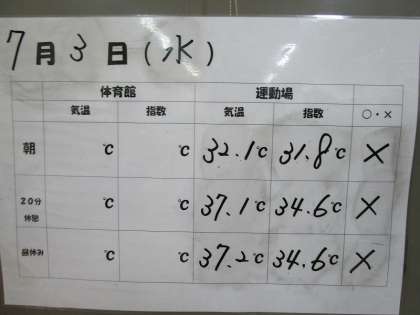 7月3日(水)
体育館 運動場
気温 指数 気温 指数 ○・×
朝 ℃ ℃ 32.1℃ 31.8℃ ×
20分休憩 ℃ ℃ 37.1℃ 34.6℃ ×
昼休み ℃ ℃ 37.2℃ 34.6℃ ×